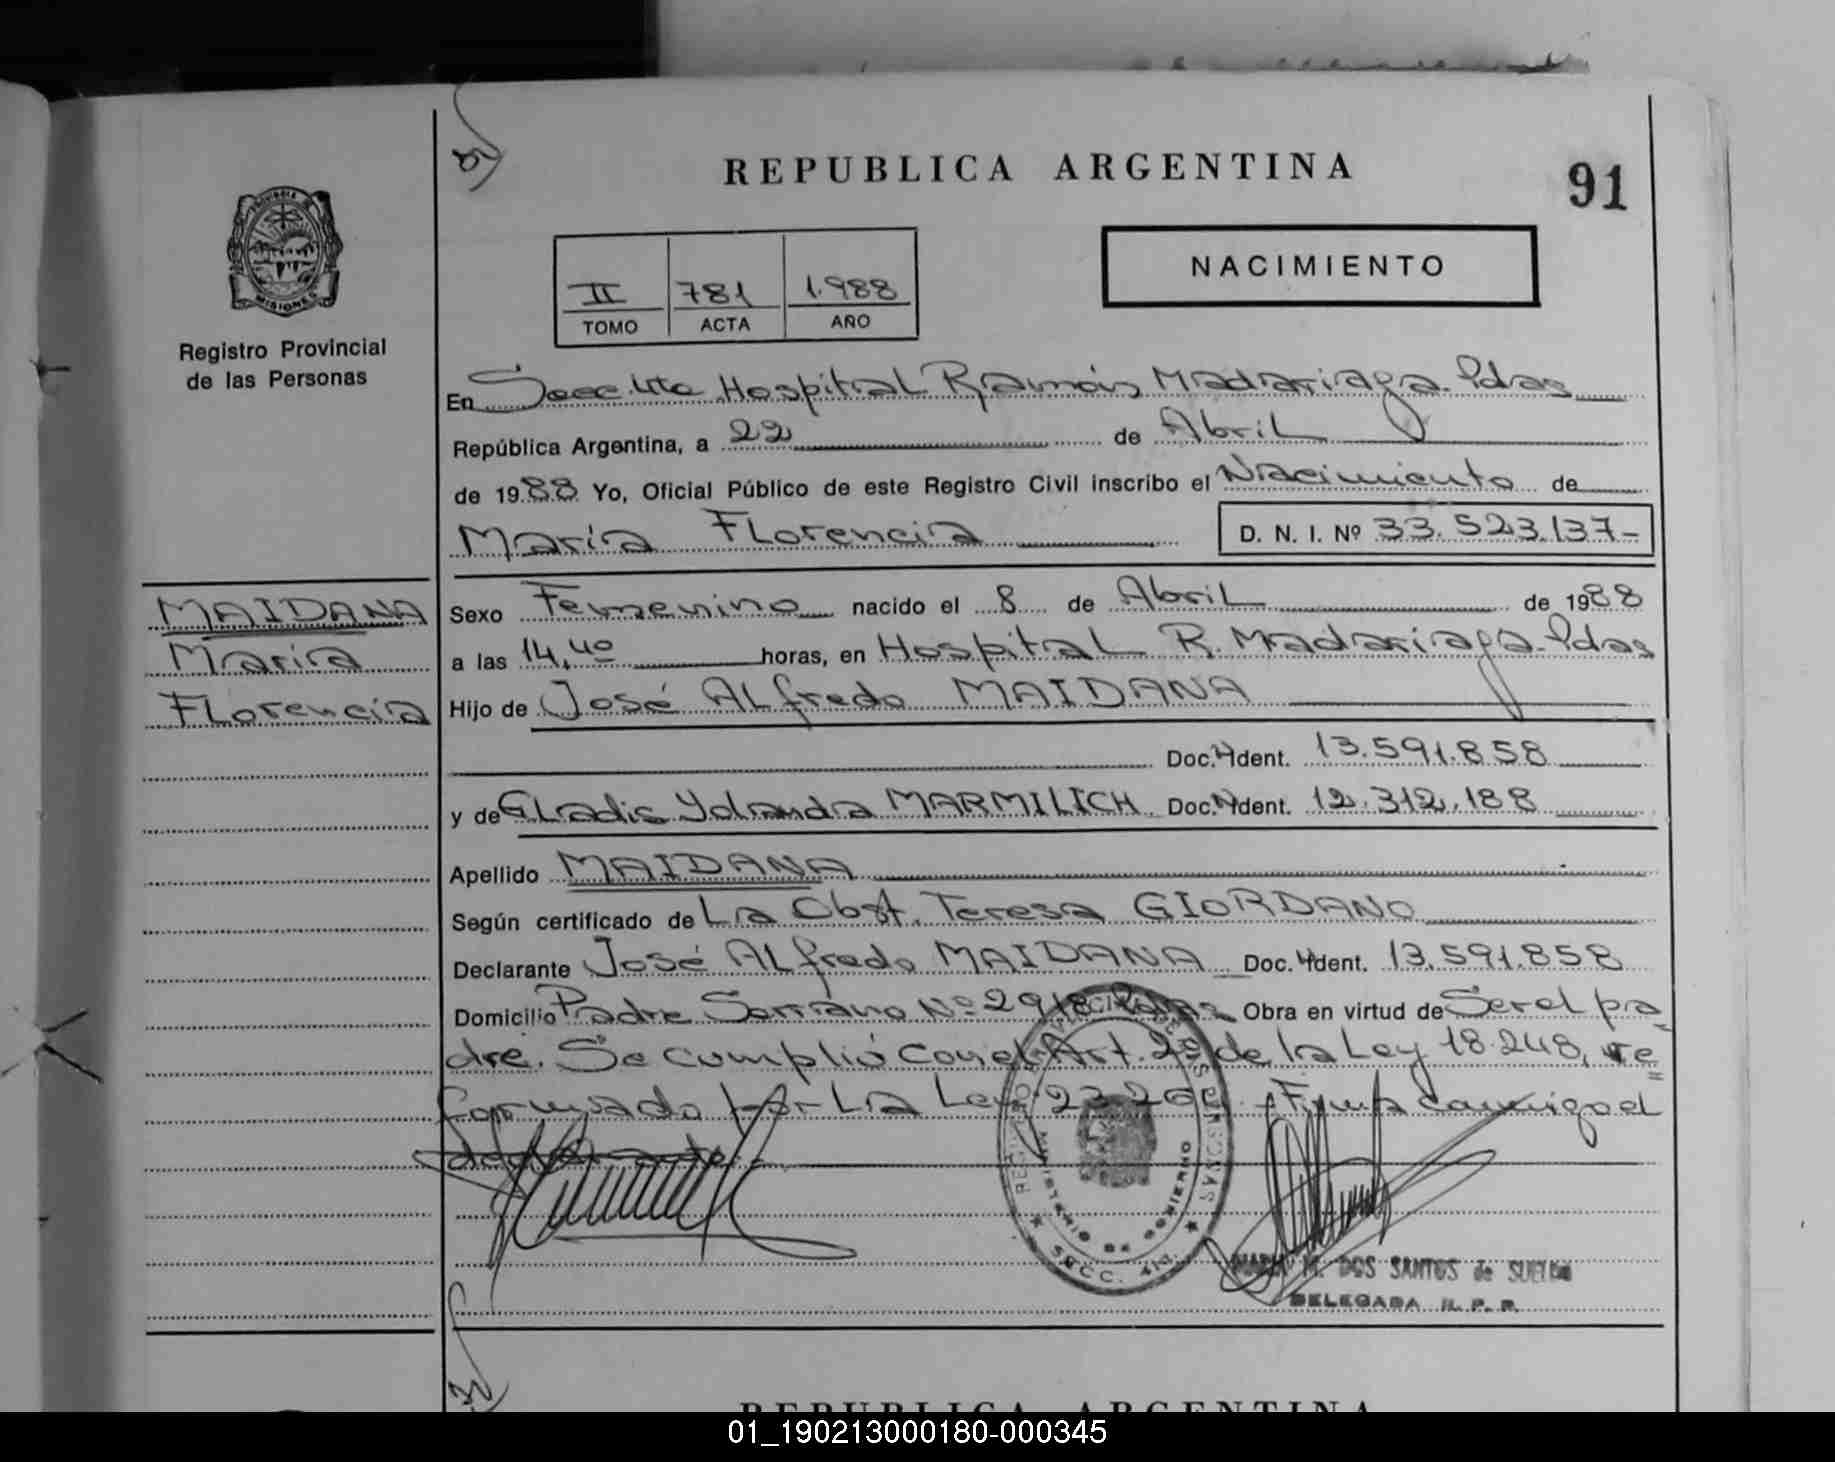 REPUBLICA ARGENTINA
91
PROVINCIA DE
MISIONES
Registro Provincial
de las Personas
II 781 1.988
TOMO ACTA AÑO
NACIMIENTO
En Secc. 4ta Hospital Ramón Madariaga. Pdas
República Argentina, a 22 de Abril
de 1988 Yo, Oficial Público de este Registro Civil inscribo el Nacimiento de
María Florencia D. N. I. Nº 33.523.137-
MAIDANA
María
Florencia
Sexo Femenino nacido el 8 de Abril de 1988
a las 14,40 horas, en Hospital R. Madariaga-Pdas
Hijo de José Alfredo MAIDANA
Doc. Ident. 13.591.858
y de Gladis Yolanda MARMILICH Doc. Ident. 12.312.188
Apellido MAIDANA
Según certificado de La Obst. Teresa GIORDANO
Declarante José Alfredo MAIDANA Doc. Ident. 13.591.858
Domicilio Padre Serrano Nº 2918 Pdas Obra en virtud de Ser el pa-
dre. Se cumplió con el Art. 2º de la Ley 18.248, re=
formado por la Ley 23.26 Firma conmigo el
declarante
REGISTRO PROVINCIAL DE LAS PERSONAS
MINISTERIO DE GOBIERNO
SECC. 4ta.
MARIA M. DOS SANTOS de SUELDO
DELEGADA R. P. P.
REPUBLICA ARGENTINA
01_190213000180-000345